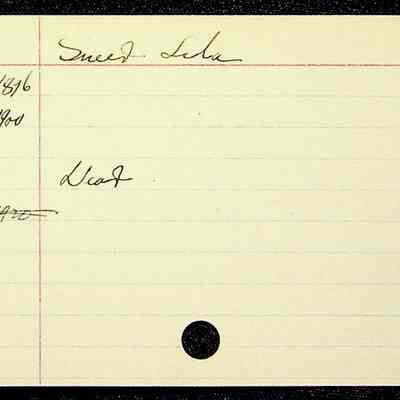 Sneed Lula
1896
1900
Dead
1920